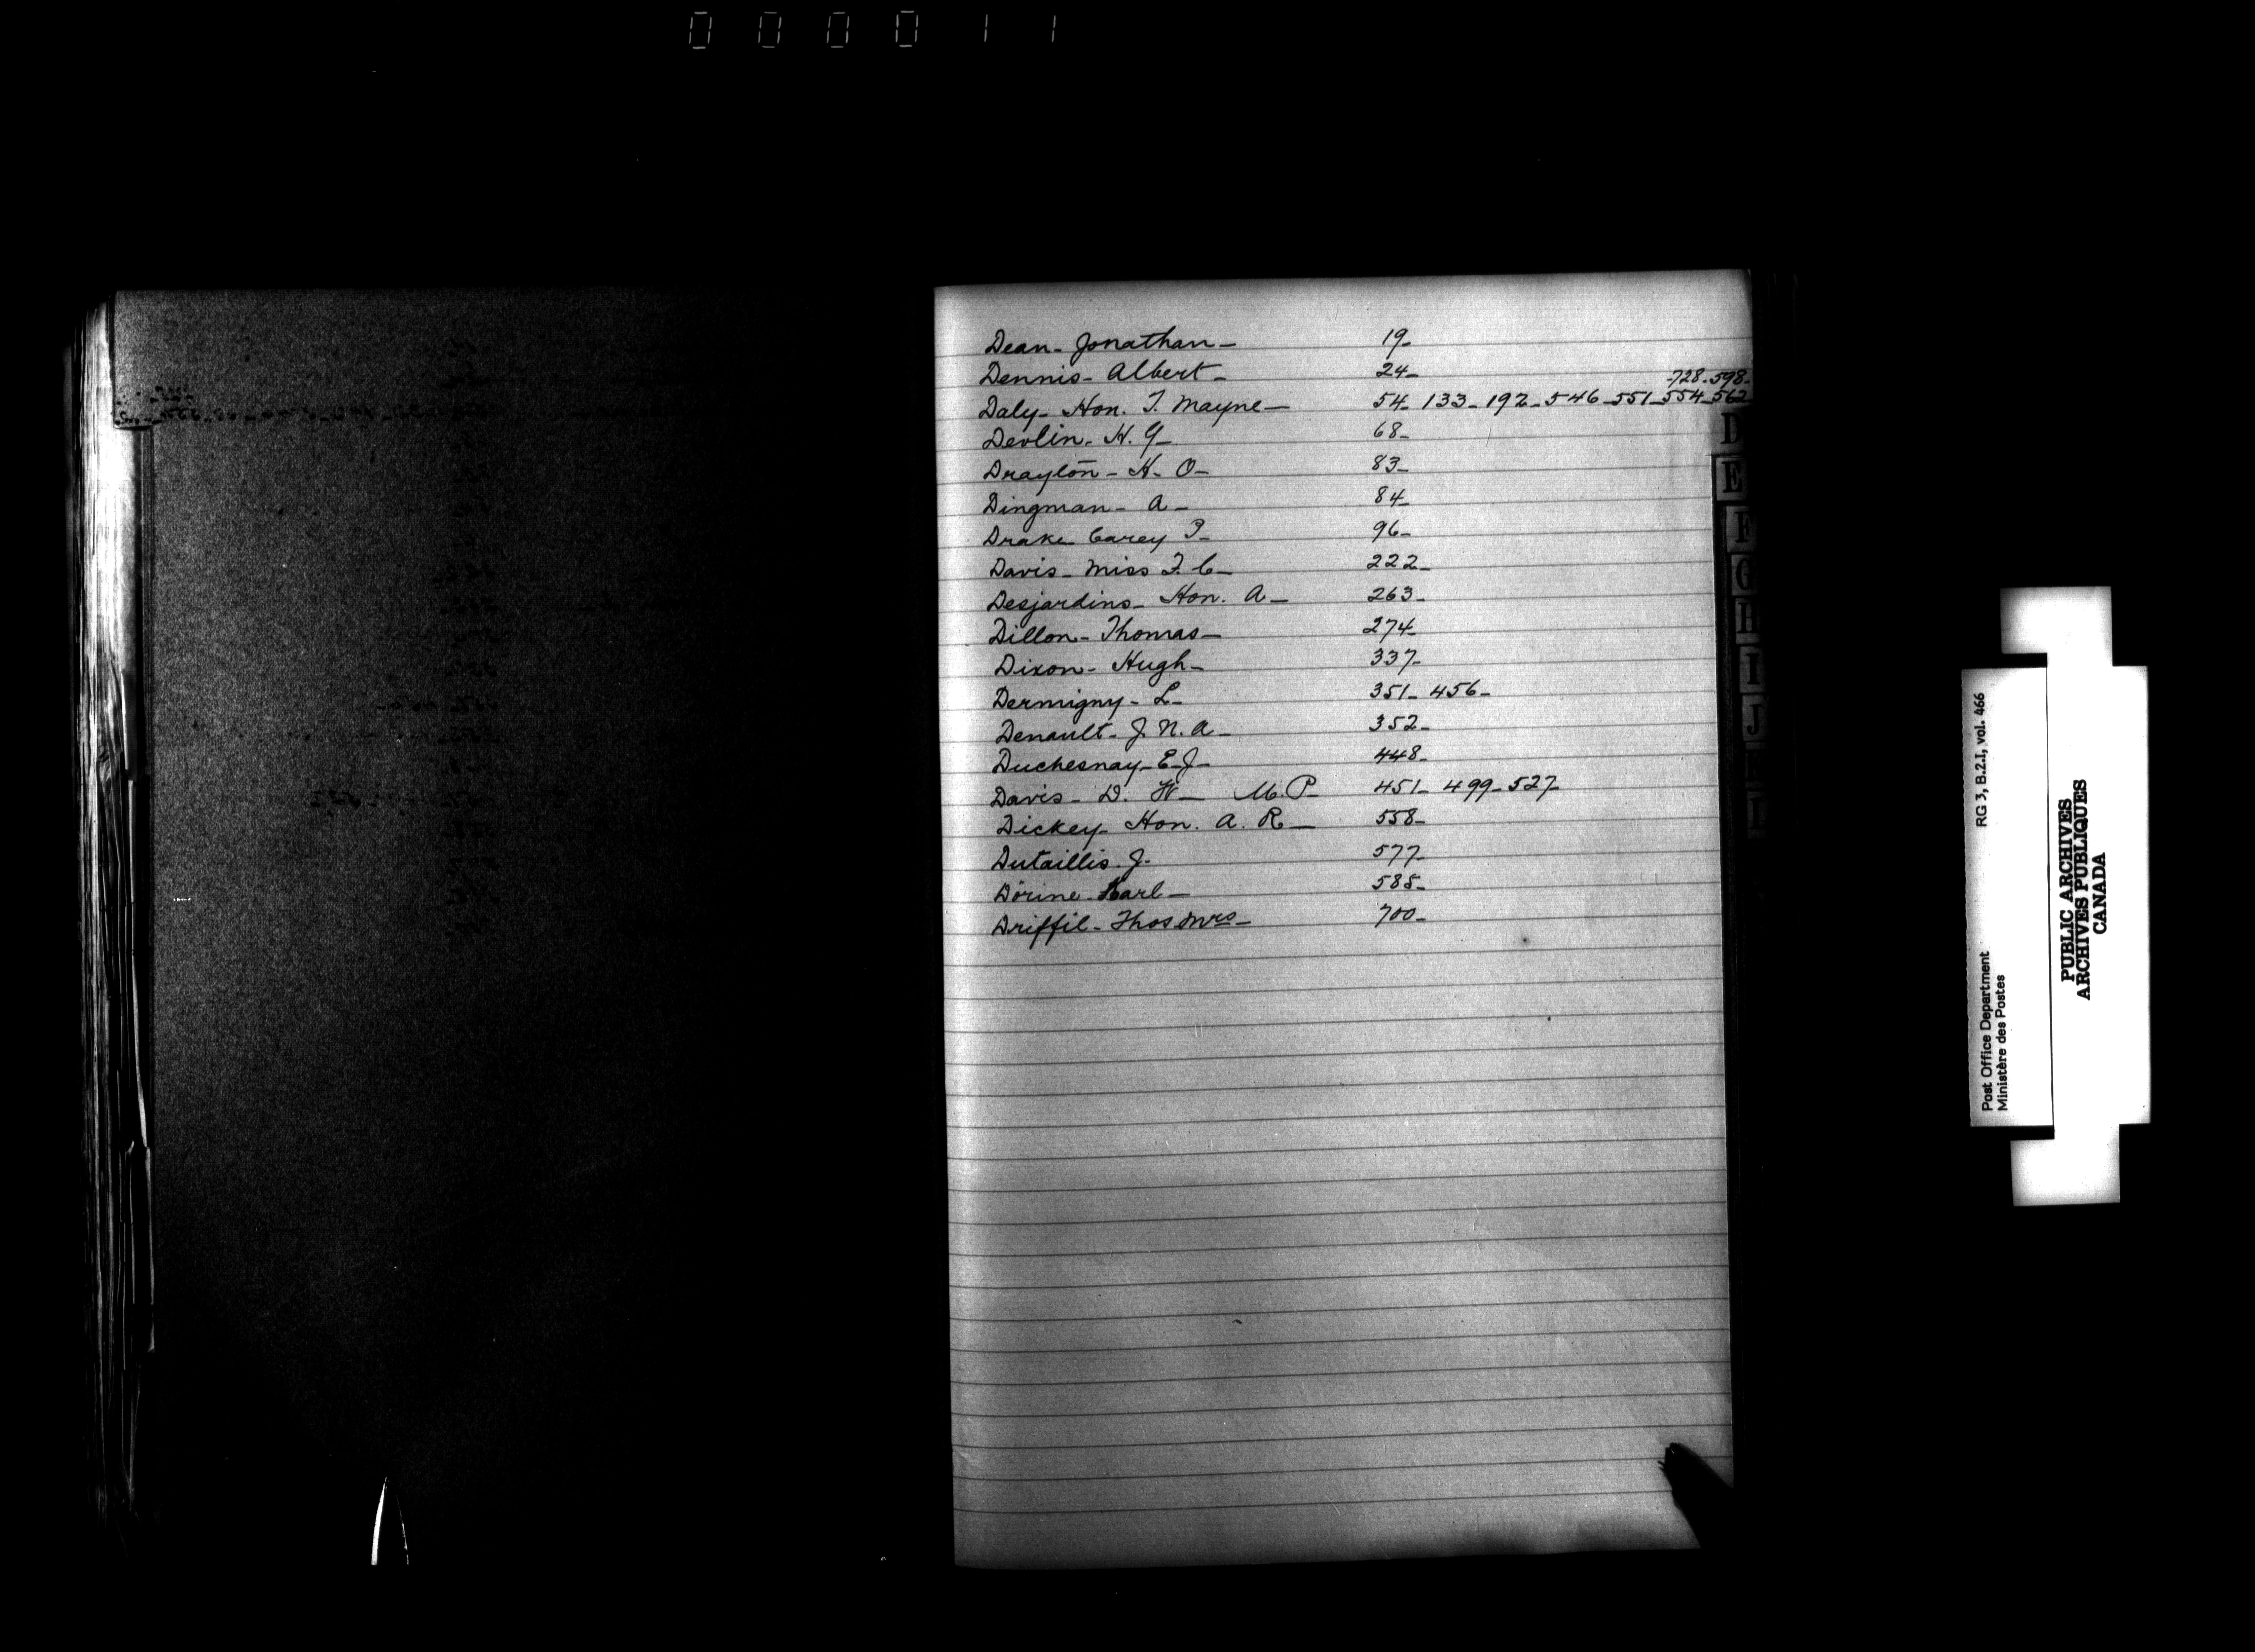 000011
Dean - Jonathan - 19 -
Dennis - Albert - 24 - - 728 - 598 -
Daly - Hon. T. Mayne - 54 - 133 - 192 - 546 - 551 - 554 - 562
Devlin - H. G - 68 -
Drayton - K. O - 83 -
Dingman - A - 84 -
Drake Carey 96 -
Davis - Miss F. C - 222 -
Desjardins - Hon. A - 263 -
Dillon - Thomas - 274 -
Dixon - Hugh - 337 -
Dermigny - L - 351 - 456 -
Denault - J. N. A - 352 -
Duchesnay - E - J - 448 -
Davis - D. W - M. P - 451 - 499 - 527 -
Dickey - Hon. A. R - 558 -
Dutaillis J. 577 -
Dörine - Karl - 585 -
Driffil - Thos Mrs - 700 -
D
E
F
G
H
I
J
RG 3, B.2.I, vol. 466
Post Office Department
Ministère des Postes
PUBLIC ARCHIVES
ARCHIVES PUBLIQUES
CANADA